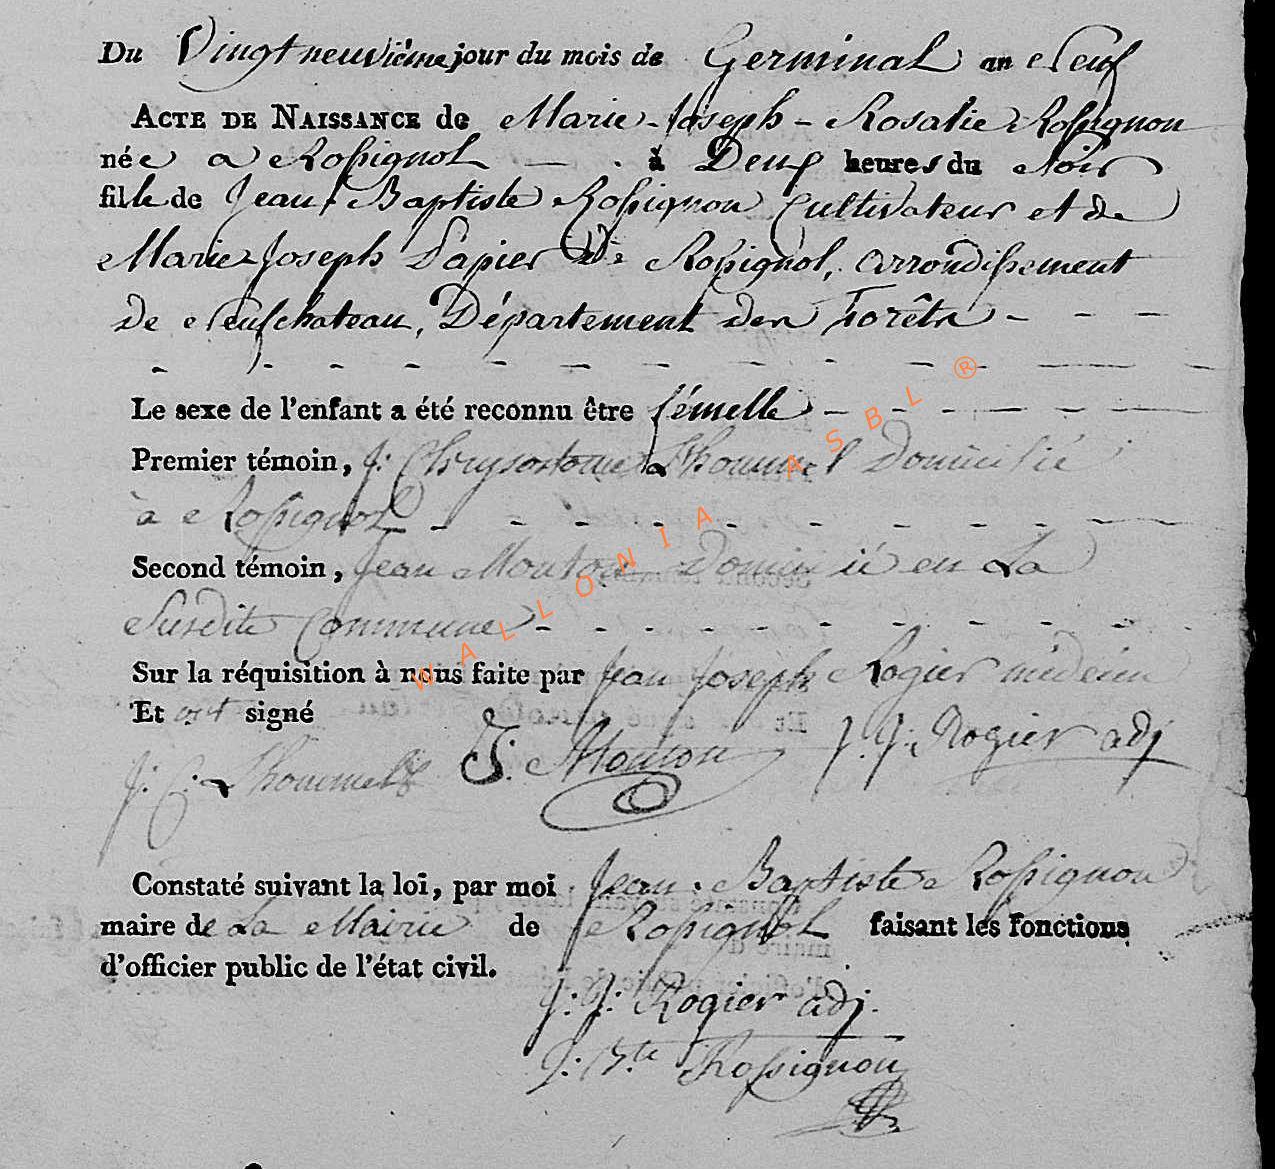 Du Vingt neuvième jour du mois de Germinal an Neuf
ACTE DE NAISSANCE de Marie-Joseph-Rosalie Rossignon
née a Rossignol - . à Deux heures du Soir
fille de Jean Baptiste Rossignon Cultivateur et de
Marie Joseph Lapier de Rossignol, arrondissement
de Neufchateau, Département des Forêts - - -
Le sexe de l'enfant a été reconnu être femelle - - - - -
Premier témoin, J: Chrysostome Lhommel Domicilié
à Rossignol - - - - - - - - -
Second témoin, Jean Mouton Domicilié en La
Susdite Commune - - - - - - - - -
Sur la réquisition à nous faite par Jean Joseph Rogier médecin
Et ont signé
J: C: Lhommel J: Mouton J. J: Rogier adj
Constaté suivant la loi, par moi Jean. Baptiste Rossignon
maire de La Mairie de Rossignol faisant les fonctions
d'officier public de l'état civil.
J: J: Rogier adj.
J: B.te Rossignon
WALLONIA ASBL ®